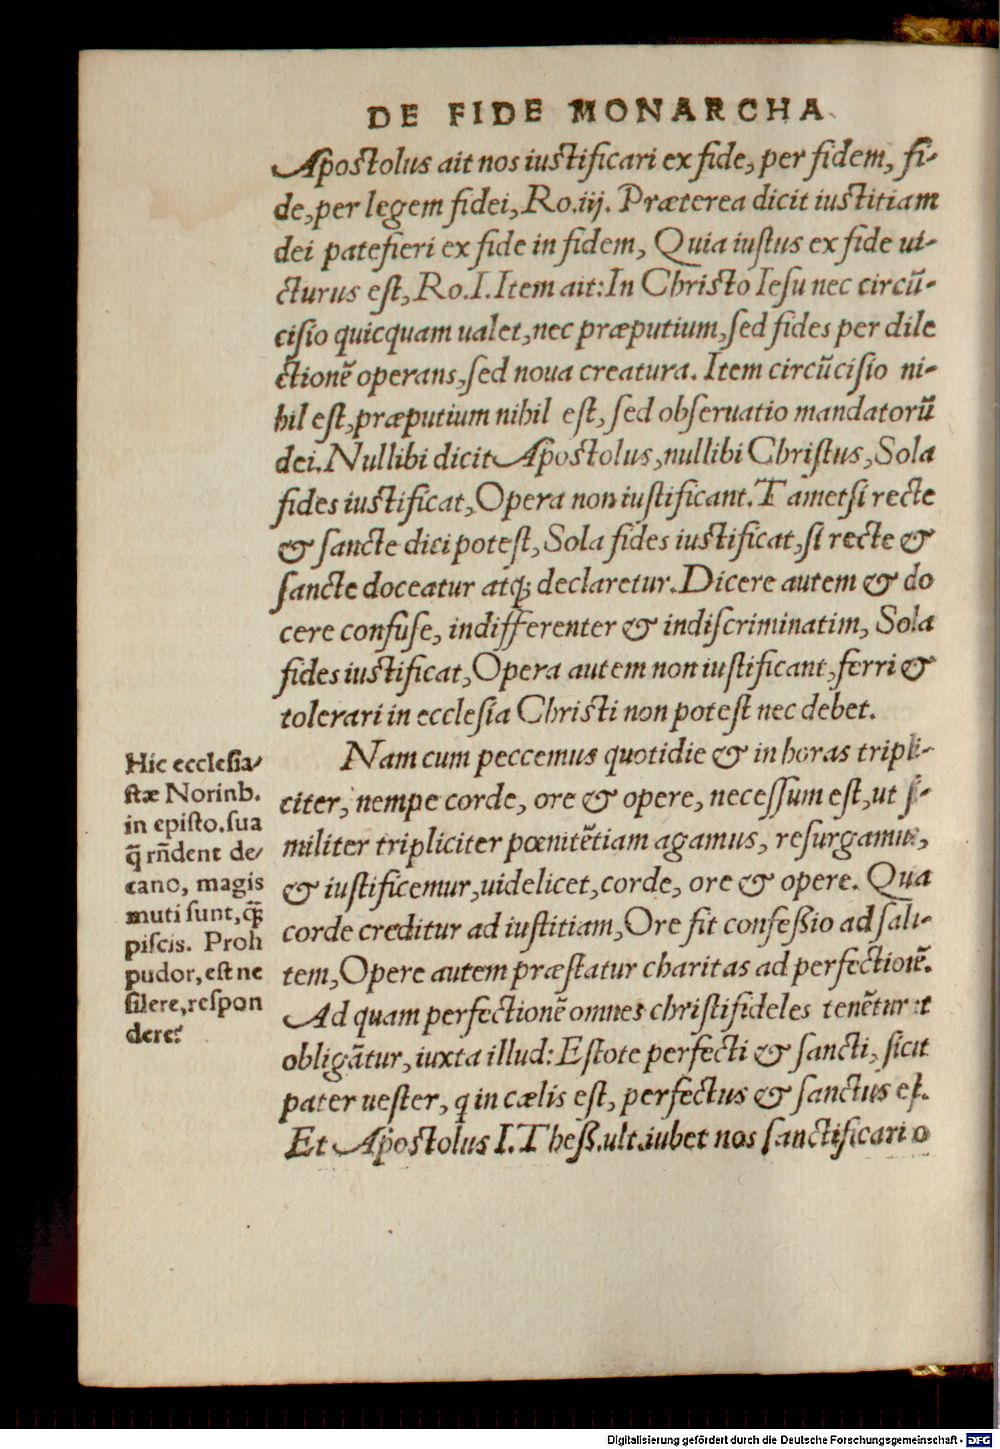 DE FIDE MONARCHA
Apostolus ait nos iustificari ex fide, per fidem, fi-
de, per legem fidei, Ro.iij. Præterea dicit iustitiam
dei patefieri ex fide in fidem, Quia iustus ex fide ui-
cturus est, Ro.I. Item ait: In Christo Iesu nec circũ-
cisio quicquam ualet, nec præputium, sed fides per dile
ctionẽ operans, sed noua creatura. Item circũcisio ni-
hil est, præputium nihil est, sed obseruatio mandatorũ
dei. Nullibi dicit Apostolus, nullibi Christus, Sola
fides iustificat, Opera non iustificant. Tametsi recte
& sancte dici potest, Sola fides iustificat, si recte &
sancte doceatur atq; declaretur. Dicere autem & do
cere confuse, indifferenter & indiscriminatim, Sola
fides iustificat, Opera autem non iustificant, ferri &
tolerari in ecclesia Christi non potest nec debet.
Nam cum peccemus quotidie & in horas tripli-
citer, nempe corde, ore & opere, necessum est, ut si-
militer tripliciter pœnitẽtiam agamus, resurgamus,
& iustificemur, uidelicet, corde, ore & opere. Qua
corde creditur ad iustitiam, Ore fit confeßio ad salu-
tem, Opere autem præstatur charitas ad perfectionẽ.
Ad quam perfectionẽ omnes christifideles tenẽtur et
obligãtur, iuxta illud: Estote perfecti & sancti, sicut
pater uester, q in cælis est, perfectus & sanctus est.
Et Apostolus I. Theß.ult.iubet nos sanctificari o
Hic ecclesia-
stæ Norinb.
in episto. sua
q̃ rñdent de-
cano, magis
muti sunt, q̃
piscis. Proh
pudor, est ne
silere, respon
dere?
Digitalisierung gefördert durch die Deutsche Forschungsgemeinschaft - DFG